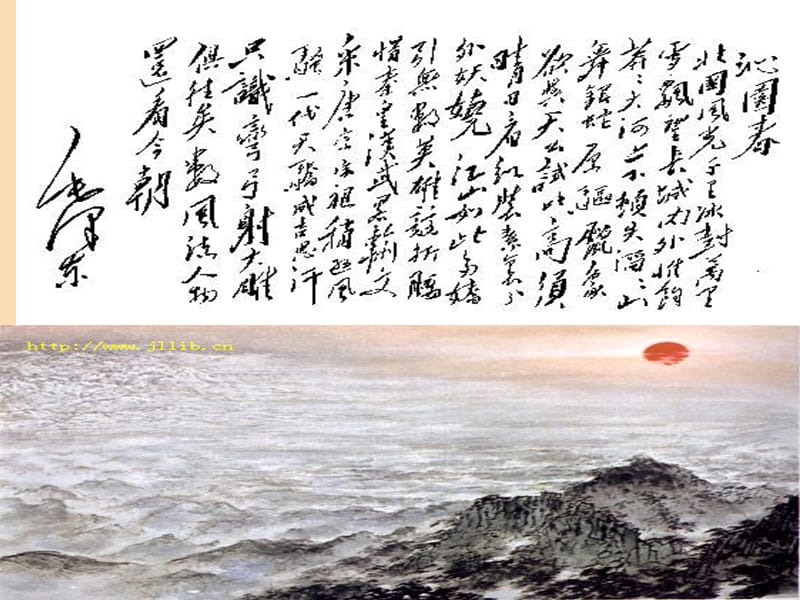 沁園春
北國風光千里冰封萬里
雪飄望長城內外惟餘
莽〻大河上下頓失滔〻山
舞銀蛇原驅臘象
欲與天公試比高須
晴日看紅裝素裹分
外妖嬈江山如此多嬌
引無數英雄競折腰
惜秦皇漢武略輸文
采唐宗宋祖稍遜風
騷一代天驕成吉思汗
只識彎弓射大雕
俱往矣數風流人物
還看今朝
毛澤東
http://www.jllib.cn